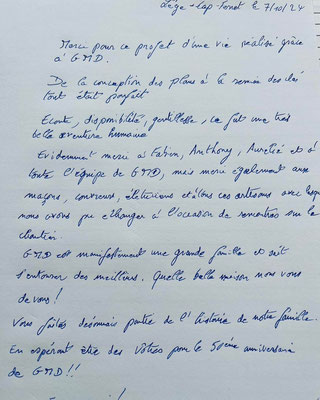 Lège-Cap Ferret le 7/10/24
Merci pour ce projet d'une vie réalisé grâce
à GMD.
De la conception des plans à la remise des clé
tout était parfait
Ecoute, disponibilité, gentillesse, ce fut une très
belle aventure humaine
Evidemment merci à Fabien, Anthony, Aurélie et à
toute l'équipe de GMD, mais merci également aux
maçons, couvreurs, électriciens et à tous ces artisans avec
nous avons pu échanger à l'occasion de rencontres sur le
chantier
GMD est manifestement une grande famille et sait
s'entourer des meilleurs. Quelle belle maison nous vous
devons!
Vous faites désormais partie de l'histoire de notre famille.
En espérant être des vôtres pour le 50ème anniversaire
de GMD!!